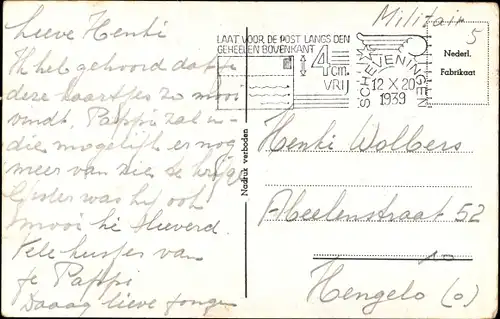 Lieve Henki
Ik heb gehoord dat je
deze kaartjes zo mooi
vindt. Pappi zal in-
die mogelijk er nog
meer van zie te krijge
was hij ook
mooi hè lieverd.
Vele kusjes van
je Pappi
Daaag lieve jongen
Nadruk verboden
LAAT VOOR DE POST LANGS DEN
GEHEELEN BOVENKANT
4
cm.
VRIJ
SCHEVENINGEN
12 X 20
1939
Militair
5
Nederl.
Fabrikaat
Henki Wolbers
Abeelenstraat 52
Hengelo (O)